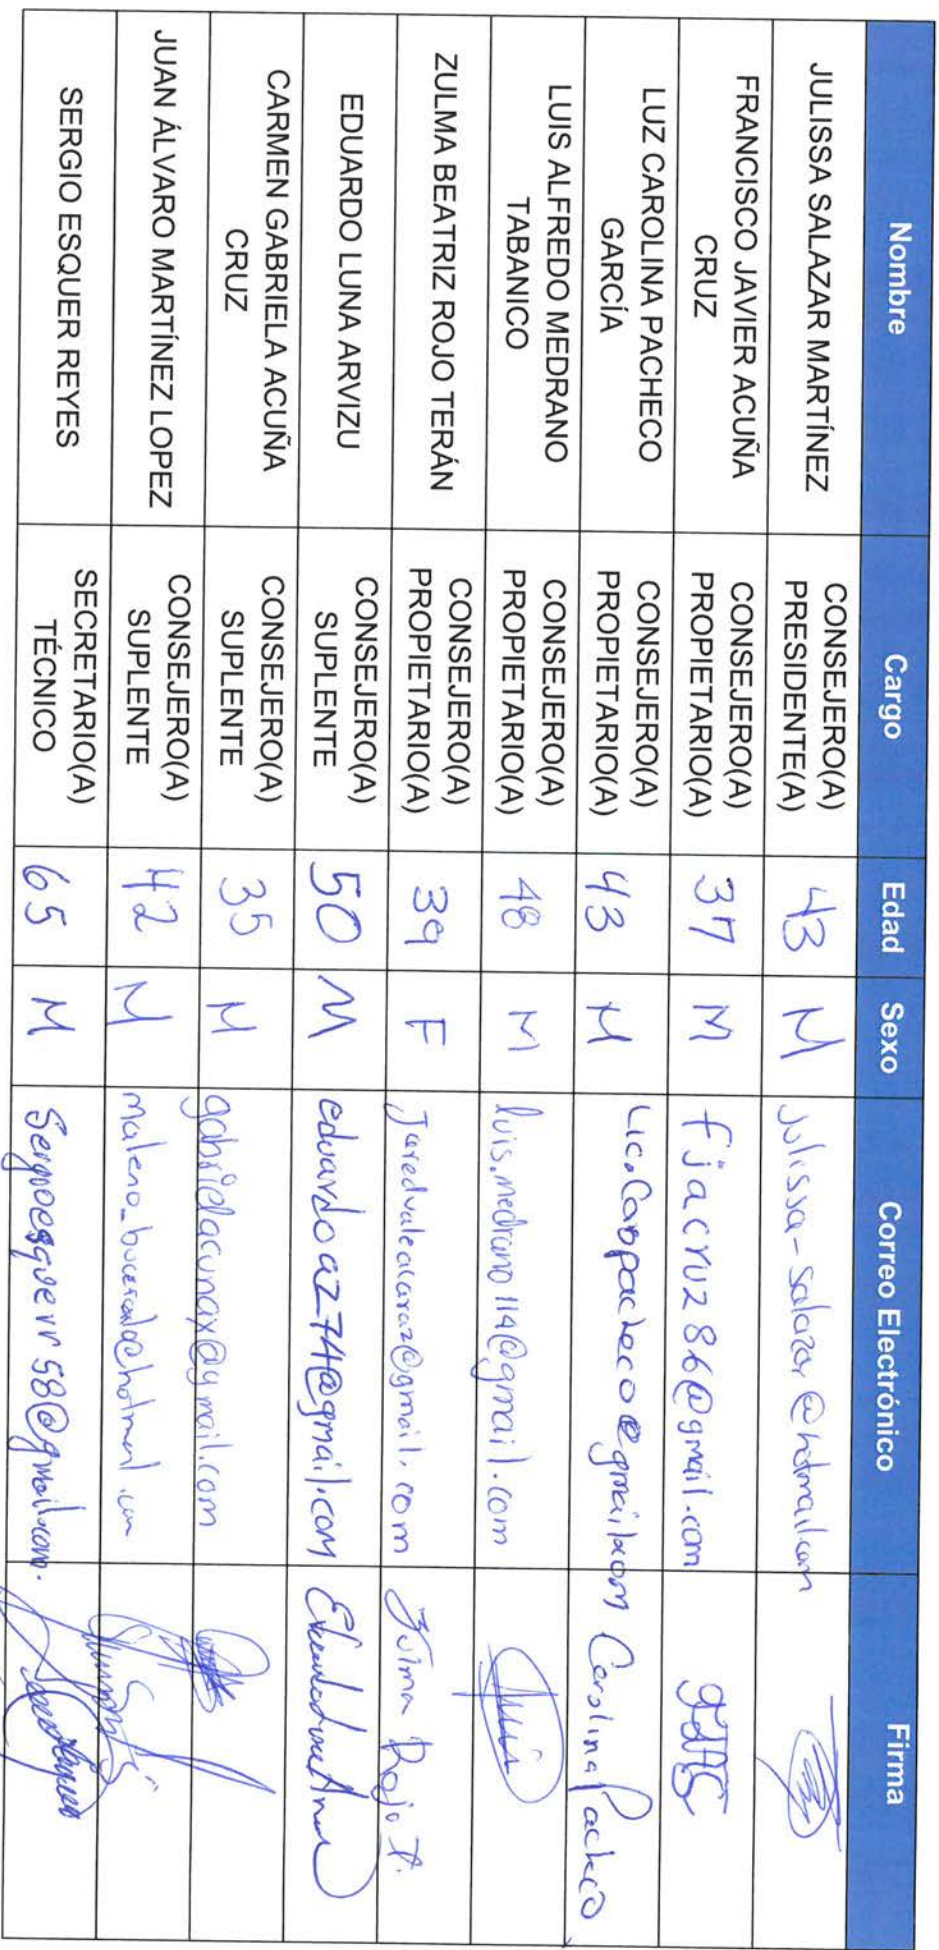 Nombre Cargo Edad Sexo Correo Electrónico Firma
JULISSA SALAZAR MARTÍNEZ CONSEJERO(A) PRESIDENTE(A) 43 M julissa-salazar@hotmail.com
FRANCISCO JAVIER ACUÑA CRUZ CONSEJERO(A) PROPIETARIO(A) 37 M fjacruz86@gmail.com
LUZ CAROLINA PACHECO GARCÍA CONSEJERO(A) PROPIETARIO(A) 43 M Lic.Caropacheco@gmail.com Carolina Pacheco
LUIS ALFREDO MEDRANO TABANICO CONSEJERO(A) PROPIETARIO(A) 48 M luis.medrano114@gmail.com
ZULMA BEATRIZ ROJO TERÁN CONSEJERO(A) PROPIETARIO(A) 39 F Jaredvalealcaraz@gmail.com Zulma Rojo T.
EDUARDO LUNA ARVIZU CONSEJERO(A) SUPLENTE 50 M eduardoaz74@gmail.com
CARMEN GABRIELA ACUÑA CRUZ CONSEJERO(A) SUPLENTE 35 M
JUAN ÁLVARO MARTÍNEZ LOPEZ CONSEJERO(A) SUPLENTE 42 M
SERGIO ESQUER REYES SECRETARIO(A) TÉCNICO 65 M